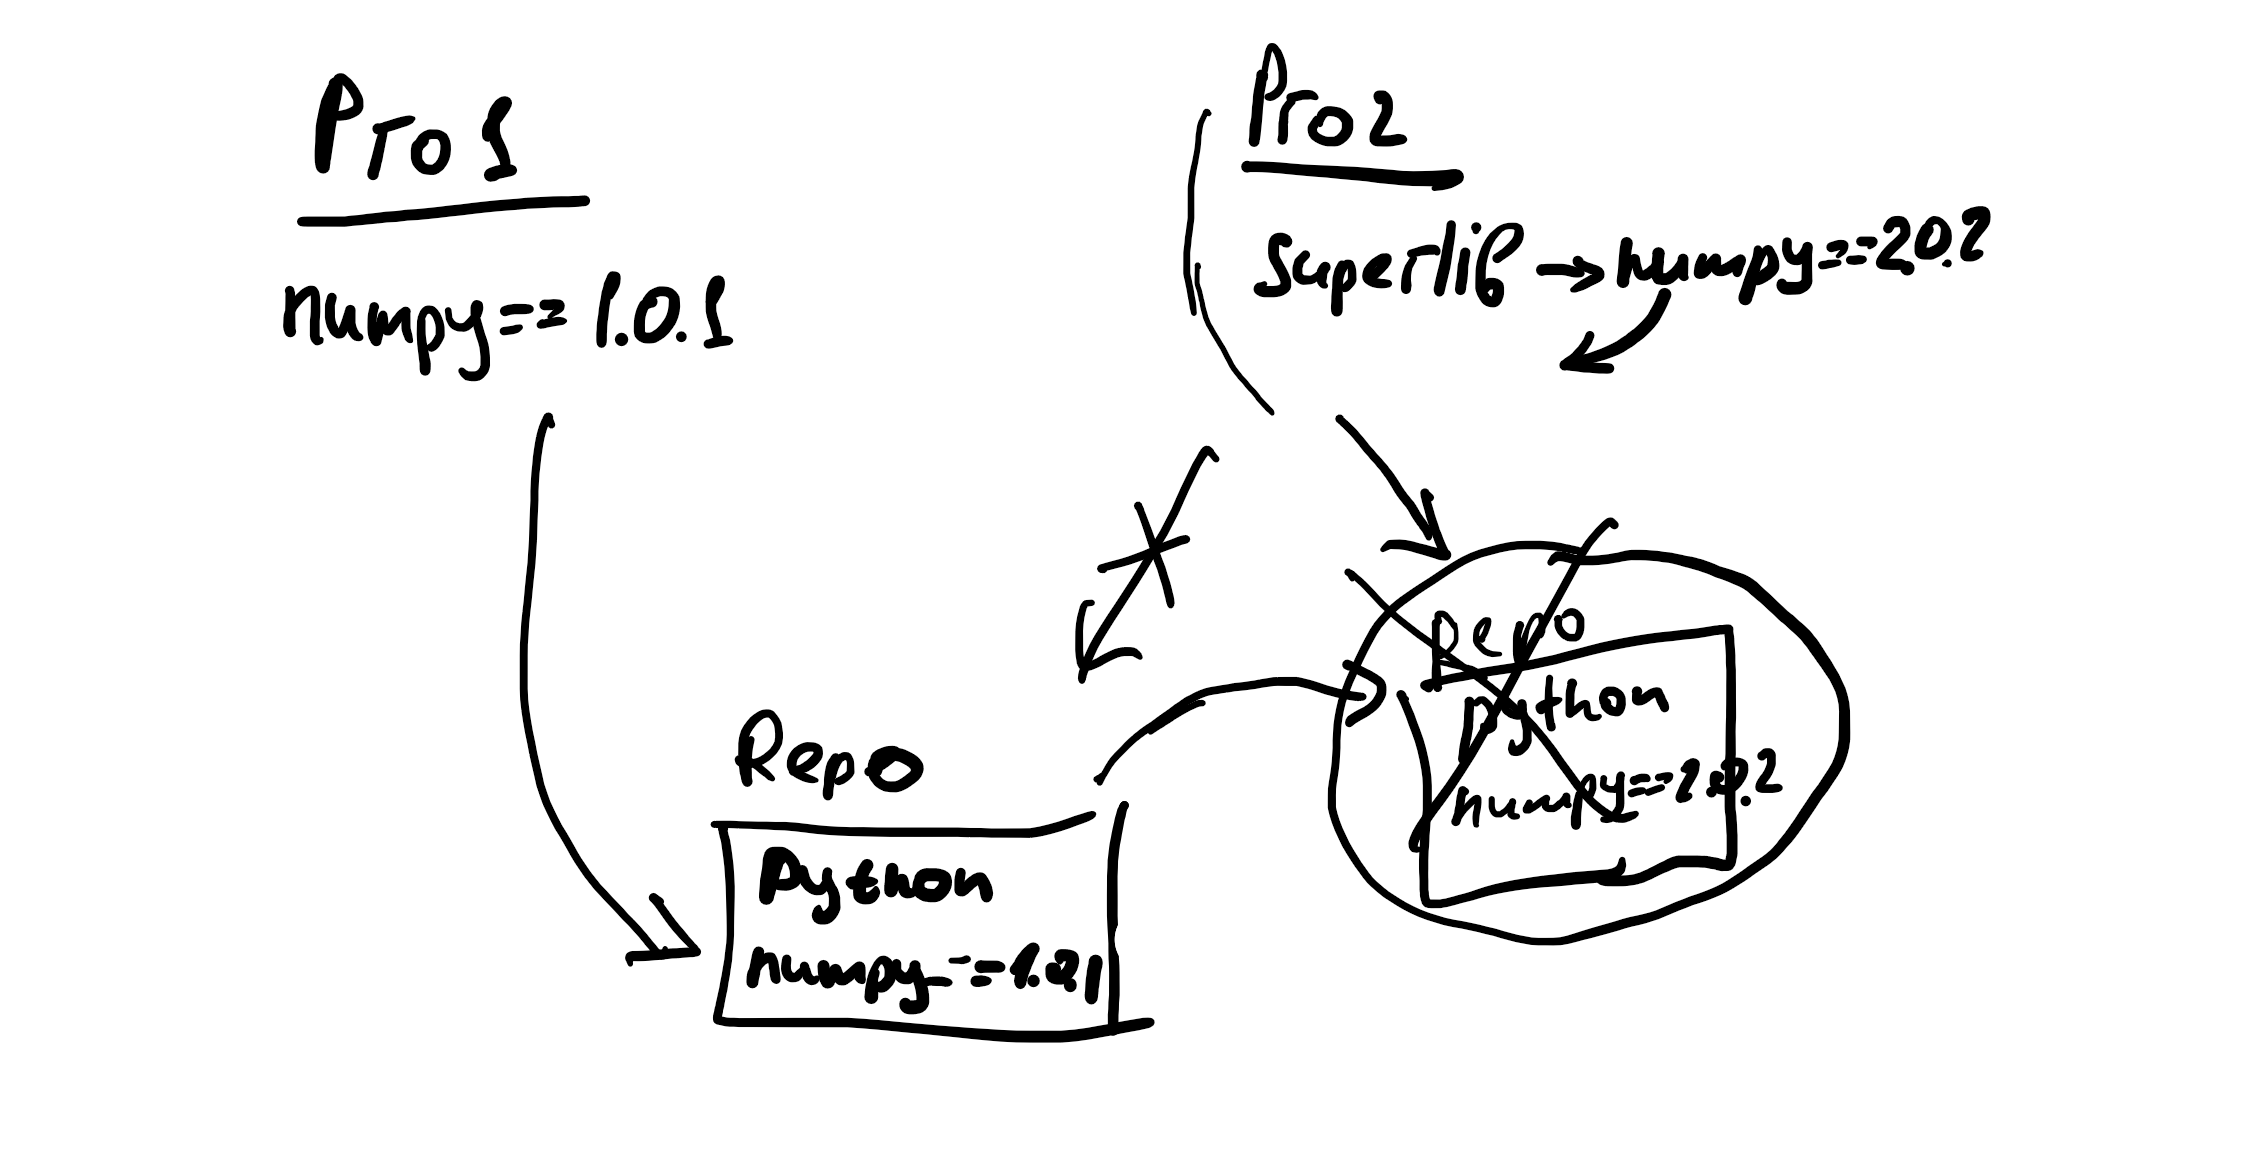 Pro1
numpy==1.0.1
Pro2
Superlib → numpy==2.0.2
Repo
Python
numpy==1.0.1
Repo
python
numpy==2.0.2